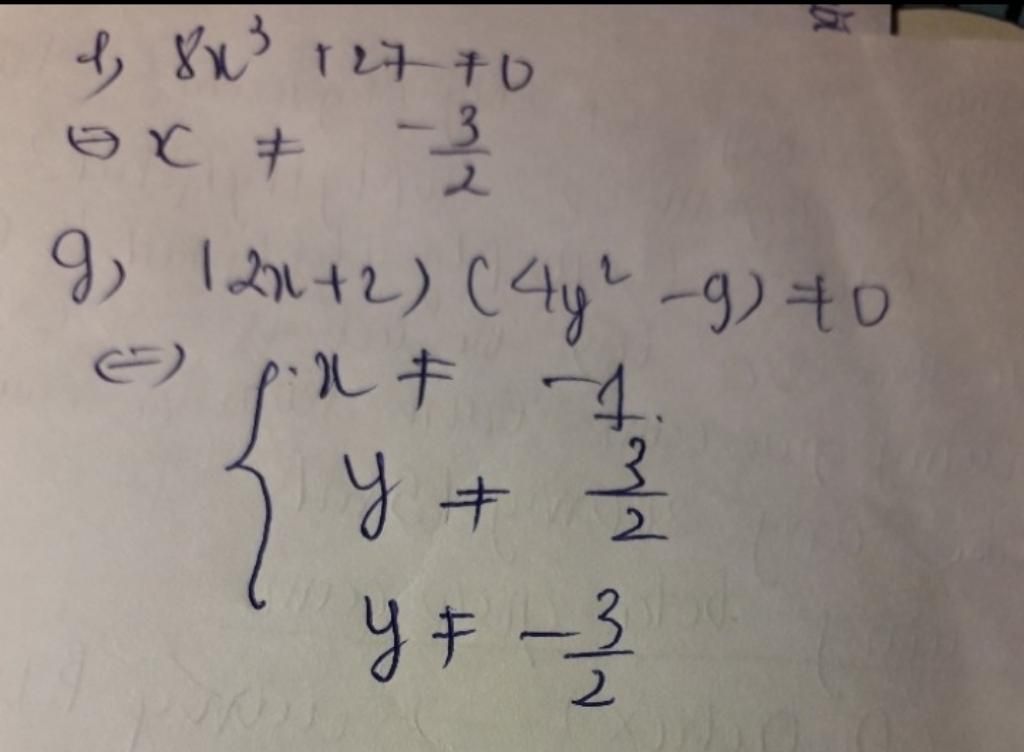 f, 8x³ + 27 ≠ 0
⇔ x ≠ -3/2
g, (2x+2) (4y² - 9) ≠ 0
⇔ { x ≠ -1
y ≠ 3/2
y ≠ -3/2